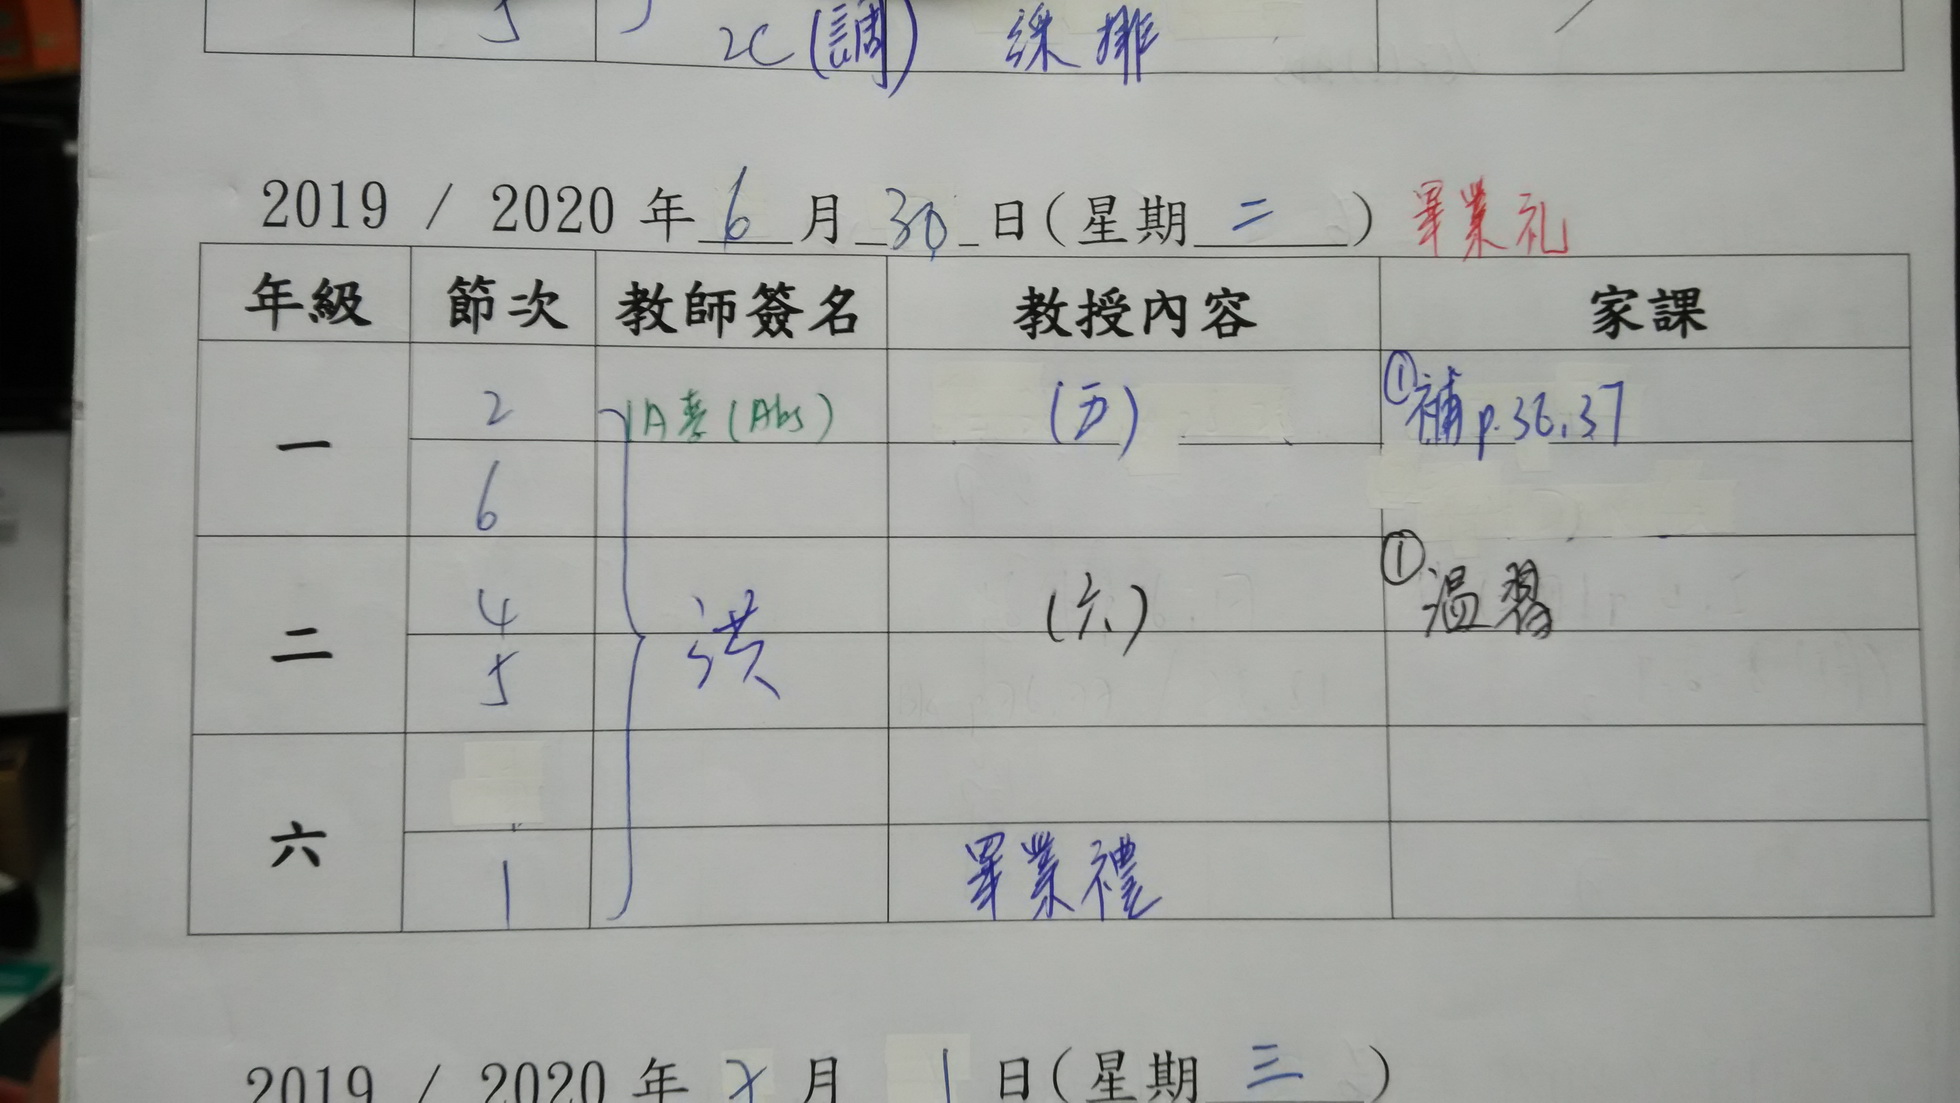 5 2C(調) 綵排
2019 / 2020 年 6 月 30 日(星期 二 ) 畢業礼
年級 節次 教師簽名 教授內容 家課
一 2 1A (Abs) (五) ①補 p.36,37
6
二 4 洪 (六) ①温習
5
六
1 畢業禮
2019 / 2020 年 7 月 1 日(星期 三 )